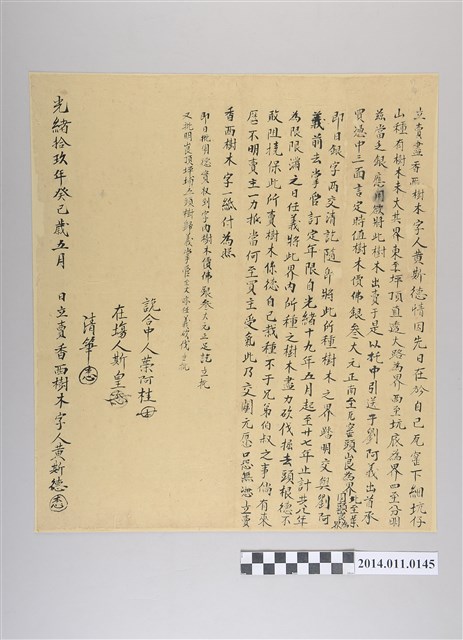 立賣盡香西樹木字人黃斯德情因先日在於自己瓦窰下細坑仔
山種有樹木未大其界東至坪頂直透大路為界西至坑底為界四至分明
茲當乏銀應用欲將此樹木出賣于是以托中引送乎劉阿義出首承
買憑中三面言定時值樹木價佛銀叁大元正南至見崁頭山
即日銀字兩交清訖隨即將此所種樹木之界踏明交與劉阿
義前去掌管訂定年限自光緒十九年五月起至廿七年止計共八年
為限限滿之日任義將此界內所種之樹木盡力砍伐掘去頭根德不
敢阻擋保此所賣樹木係德自己栽種不干兄弟伯叔之事倘有來
歷不明賣主一力抵當何至買主受虧此乃交關元愿口恐無憑立賣
香西樹木字一紙付為照
即日批明德實收到字內樹木價佛銀叁大元正足訖立批
又批明崀頂坪埔五頭樹歸義掌管大小任義砍伐立批
說合中人葉阿桂
在場人斯皇
清筆
光緒拾玖年癸巳歲五月 日立賣香西樹木字人黃斯德
2014.011.0145